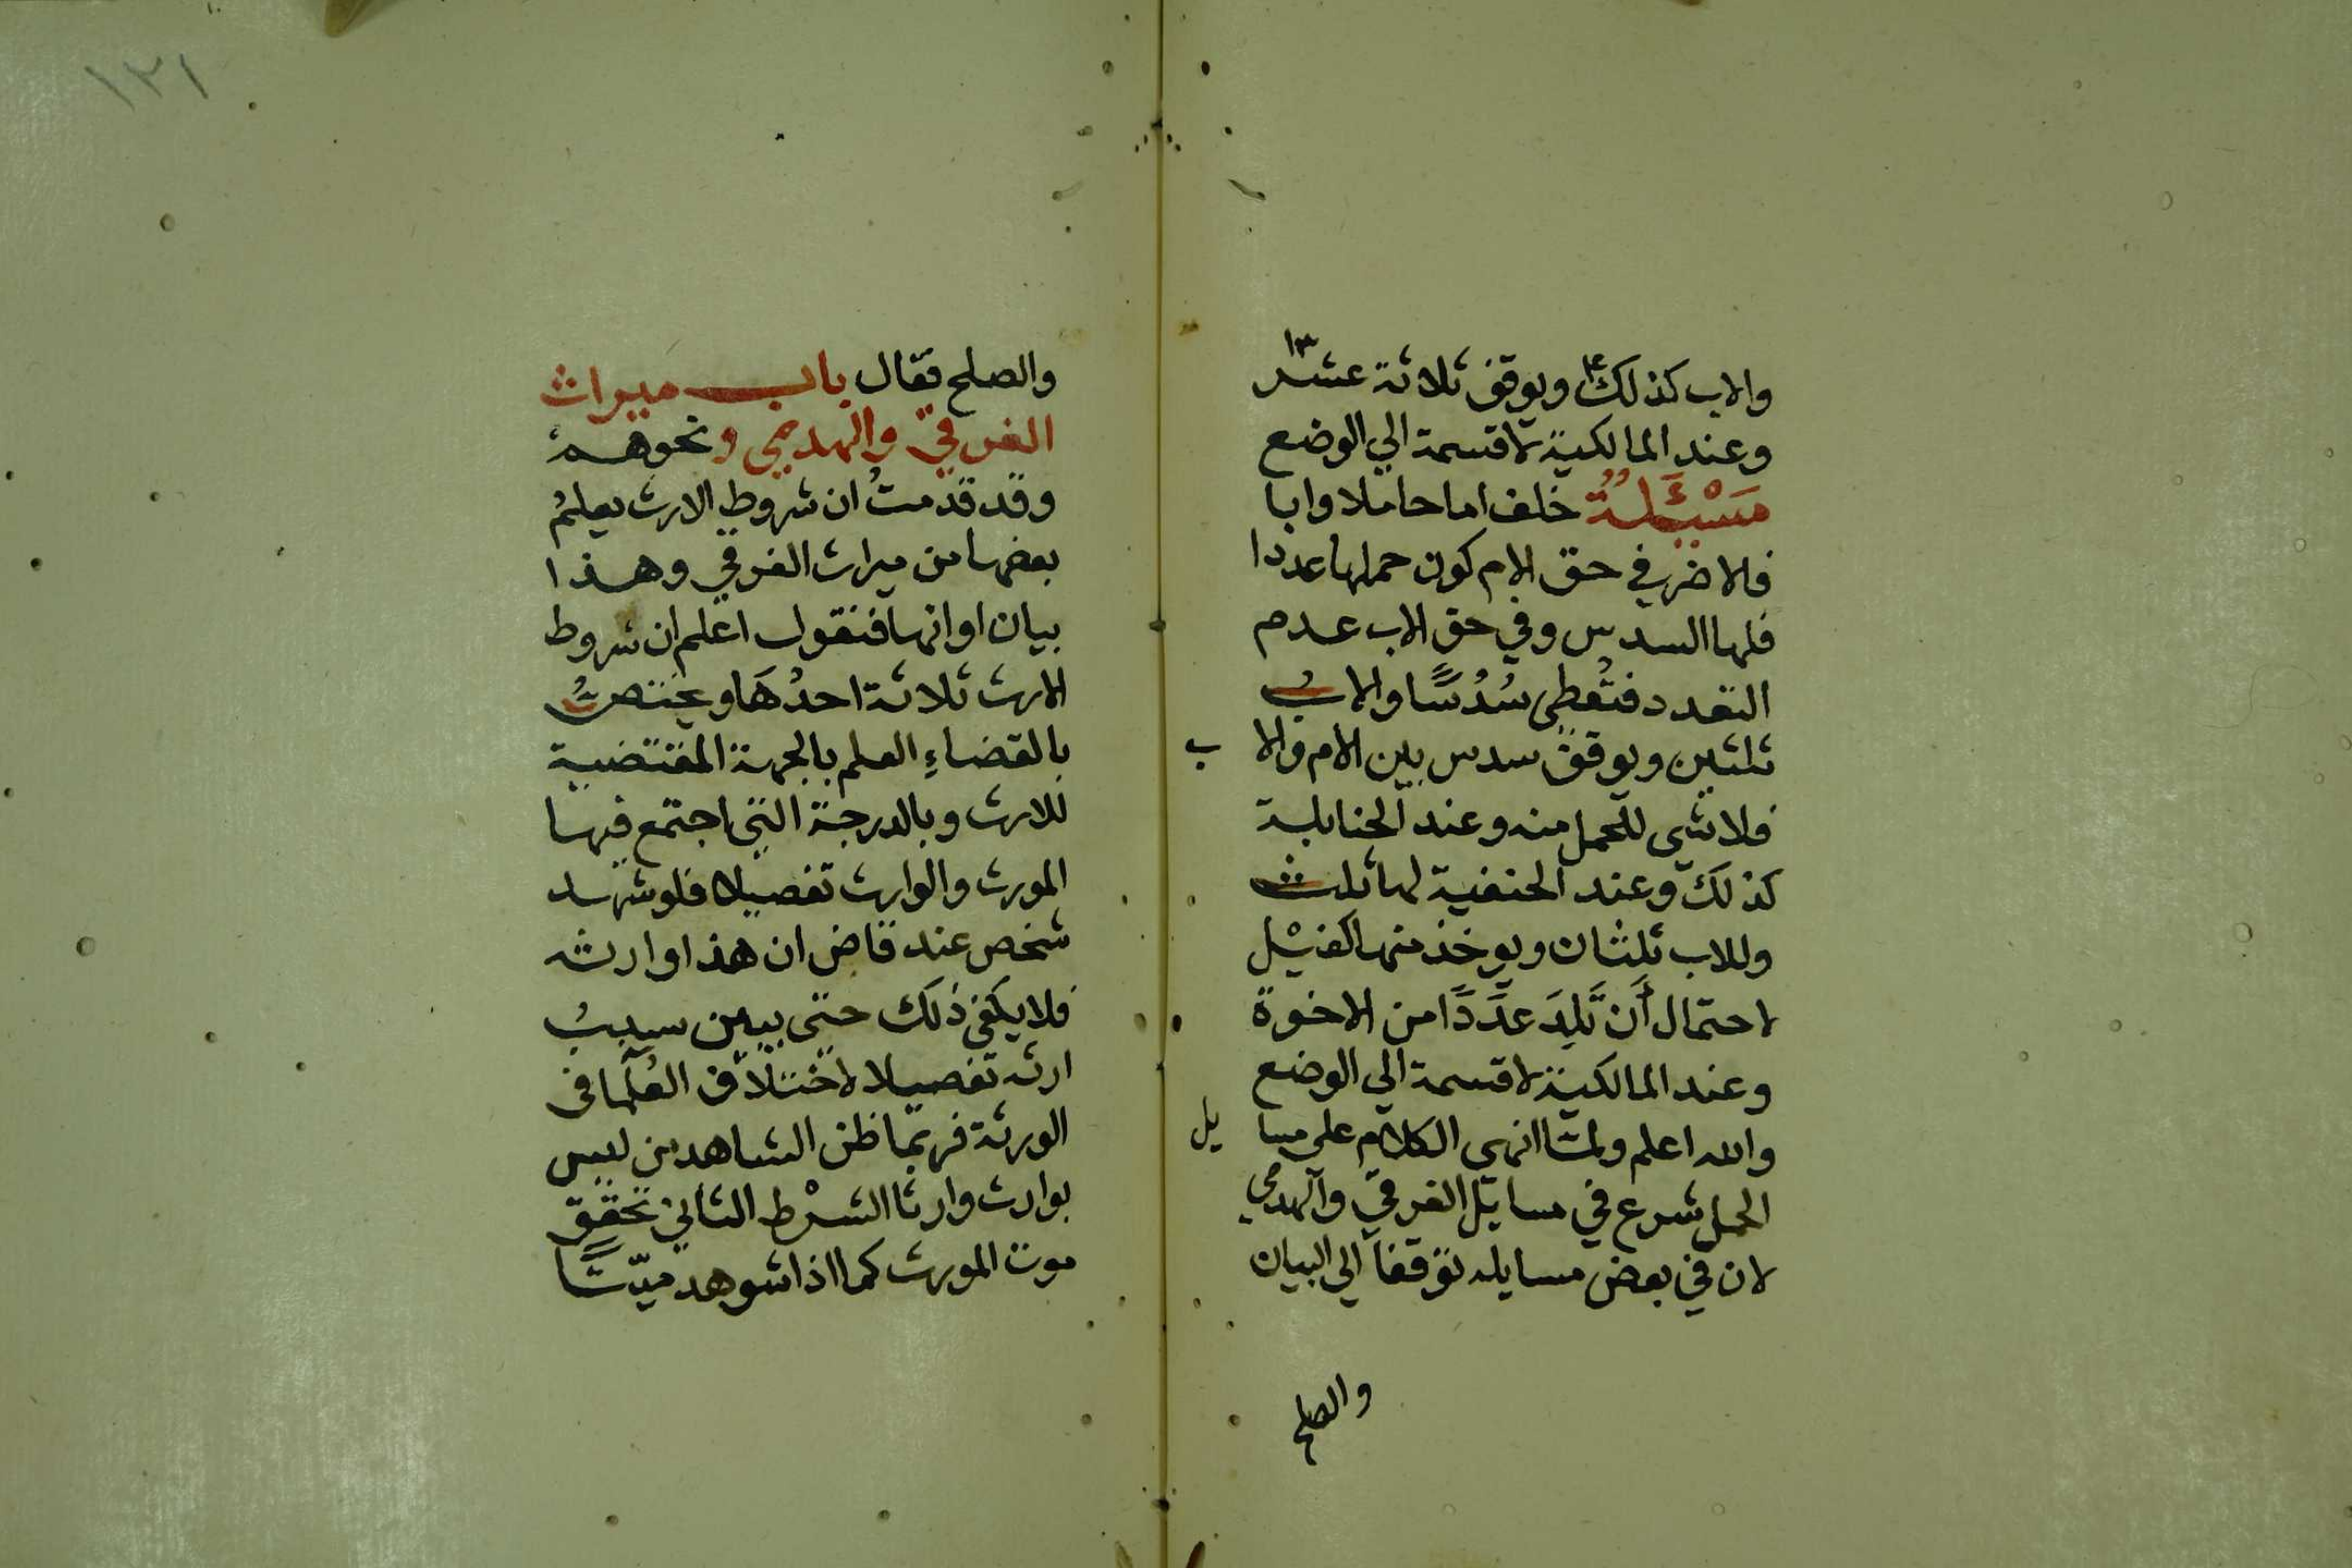 والاب كذلك ٤ ويوقف ثلاثة عشر ١٣
وعند المالكية لا قسمة الي الوضع
مَسْئَلَةٌ خلف اما حاملا وابا
فالاضر في حق الام كون حملها عددا
فلها السدس وفي حق الاب عدم
التعدد فتُعطي سُدُسًا والابُ
ثلثين ويوقف سدس بين الام والا ب
فلا شي للحمل منه وعند الحنابلة
كذلك وعند الحنفية لها ثلث
وللاب ثلثان ويوخذ منها كفيل
لاحتمال أَن تَلِدَ عَدَدًا من الاخوة
وعند المالكية لا قسمة الي الوضع
والله اعلم ولما انهي الكلام علي مسا يل
الحمل شرع في مسايل الغرقي والهدمي
لان في بعض مسايله توقفا الي البيان
والصلح
١٣١
والصلح فقال باب ميراث
الغرقي والهدمي ونحوهم
وقد قدمتُ ان شروط الارث يعلمُ
بعضها من ميراث الغرقي وهذا
بيان اوانها فنقول اعلم ان شروط
الارث ثلاثة احدُهَا ويختصُ
بالقضاءِ العلم بالجهة المقتضية
للارث وبالدرجة التي اجتمع فيها
المورث والوارث تفصيلا فلو شهد
شخص عند قاض ان هذا وارثه
فلا يكفي ذلك حتي يبين سببُ
ارثه تفصيلا لاختلاف العُلما في
الورثة فربما ظن الشاهد من ليس
بوارث وارثا الشرْط الثاني تحقق
موت المورث كما اذا شوهد ميّتًا